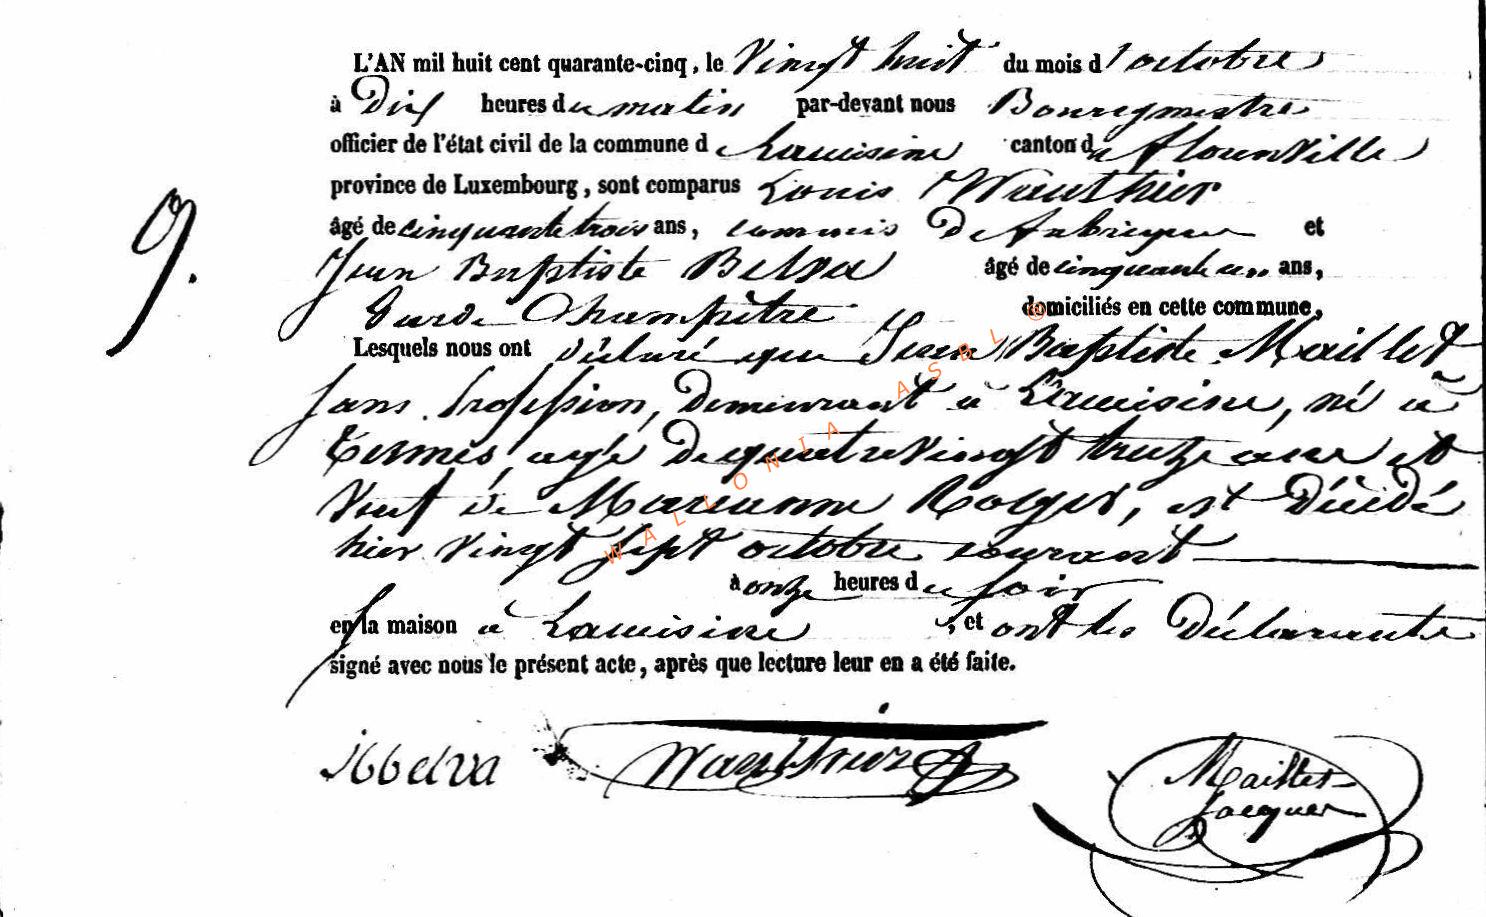 L'AN mil huit cent quarante-cinq, le Vingt huit du mois d'octobre
à Dix heures du matin par-devant nous Bourgmestre
officier de l'état civil de la commune de Lacuisine canton de florenville
province de Luxembourg, sont comparus Louis Wauthier
âgé de cinquante trois ans, commis De fabrique et
Jean Baptiste Belva âgé de cinquante un ans,
Garde Champêtre domiciliés en cette commune,
Lesquels nous ont déclaré que Jean Baptiste Maillet
sans profession, Demeurant à Lacuisine, né à
Termes, agé De quatre Vingt treize ans et
Veuf de Marianne Roger, est Décédé
hier Vingt sept octobre courant
à onze heures du soir
en sa maison à Lacuisine, et ont les Déclarants
signé avec nous le présent acte, après que lecture leur en a été faite.
9.
JBBelva Wauthier Maillet
Jacques
WALLONIA ASBL ©